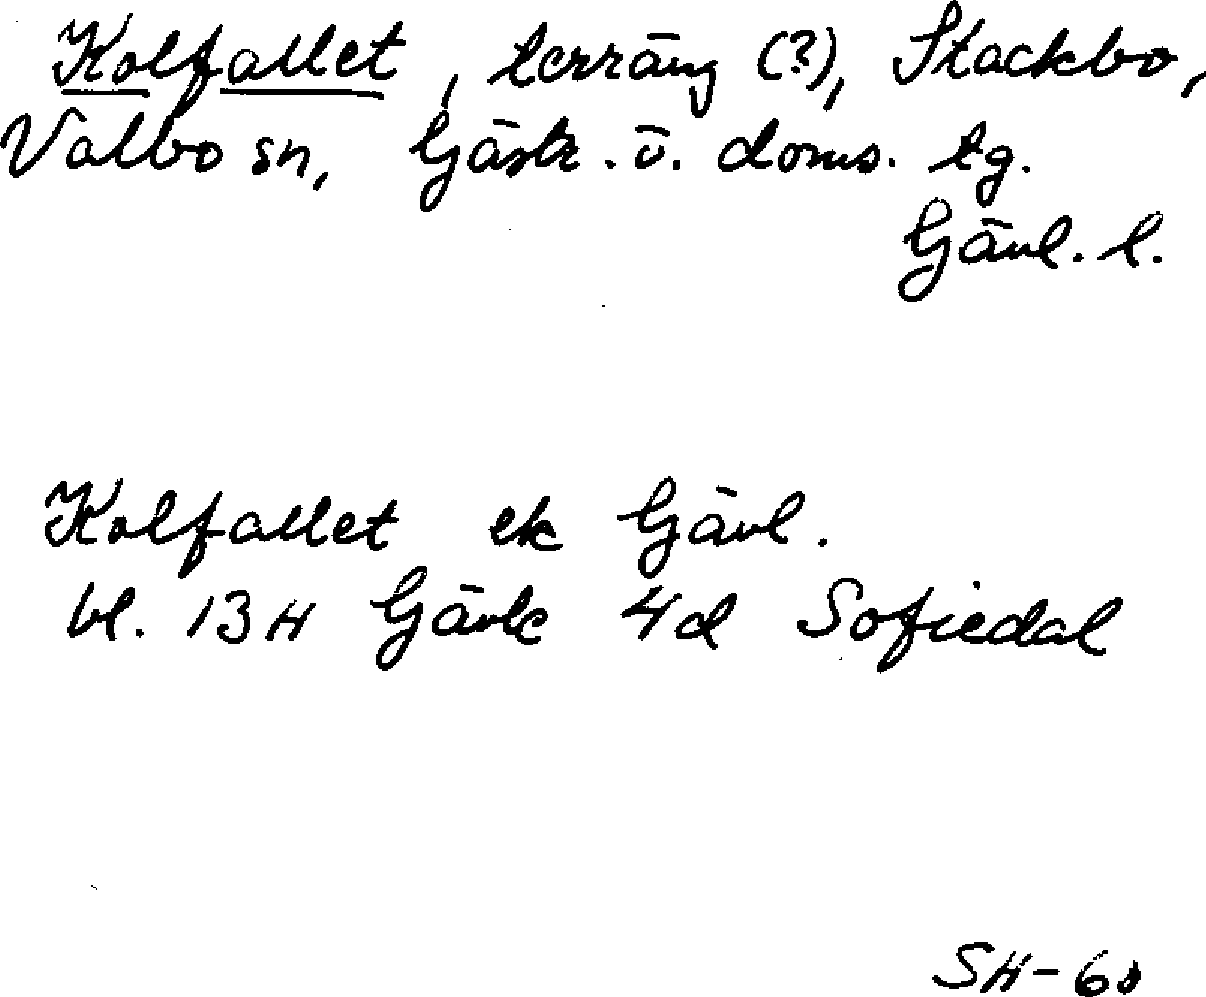 Kolfallet, terräng (?), Stackbo,
Valbo sn, Gästr. ö. doms. tg.
Gävl. l.
Kolfallet ek Gävl.
bl. 13H Gävle 4d Sofiedal
SH-60